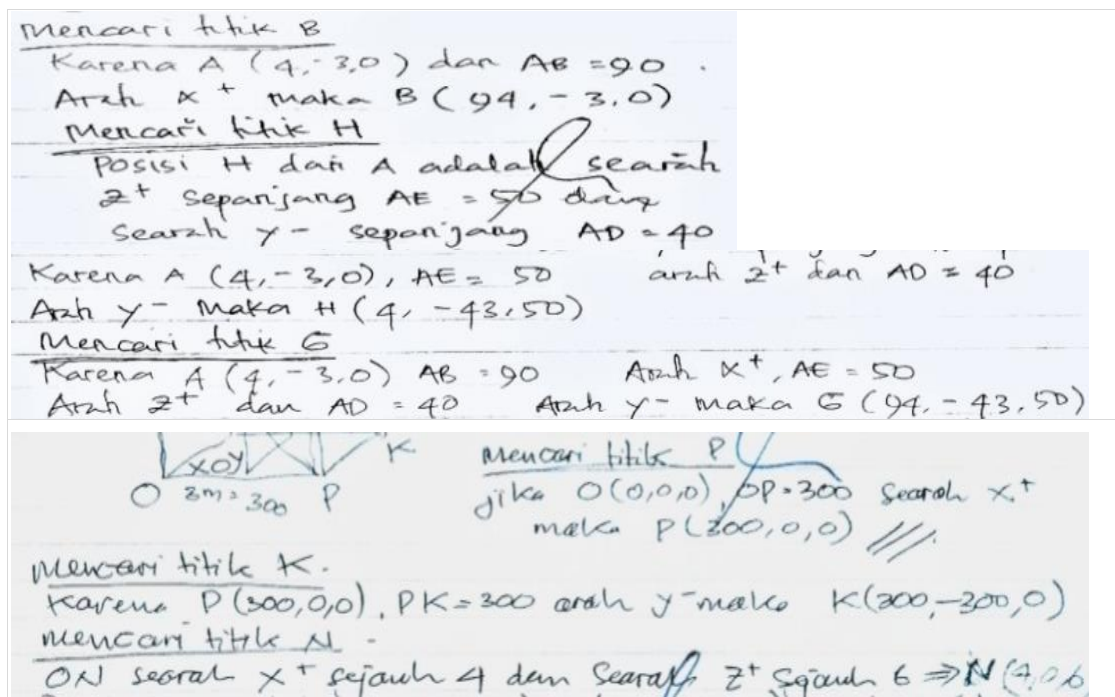 Mencari titik B
Karena A (4,-3,0) dan AB = 90.
Arah x⁺ maka B (94, -3,0)
Mencari titik H
Posisi H dari A adalah searah
z⁺ sepanjang AE = 50 dan
searah y⁻ sepanjang AD = 40
Karena A (4,-3,0), AE = 50 arah z⁺ dan AD = 40
Arah y⁻ maka H (4, -43,50)
Mencari titik G
Karena A (4,-3,0) AB = 90 Arah x⁺, AE = 50
Arah z⁺ dan AD = 40 Arah y⁻ maka G (94, -43,50)
XOY K
O 3m = 300 P
Mencari titik P
jika O(0,0,0), OP = 300 searah x⁺
maka P(300,0,0) //
Mencari titik K.
Karena P(300,0,0), PK = 300 arah y⁻ maka K(300,-300,0)
mencari titik N
ON searah x⁺ sejauh 4 dan searah z⁺ sejauh 6 ⇒ N (4,0,6